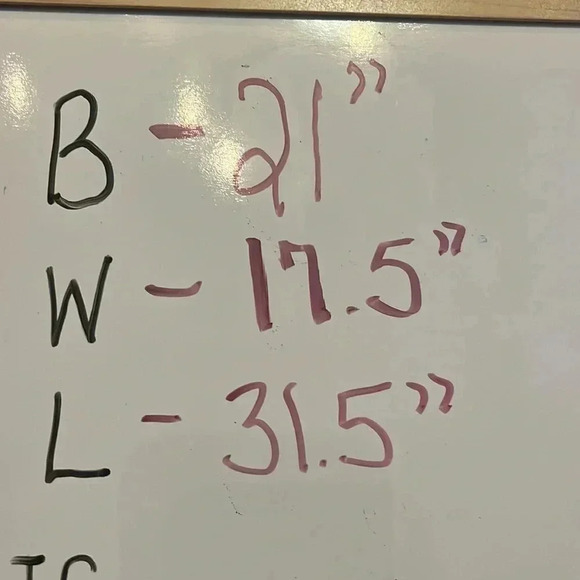 B - 21”
W - 17.5”
L - 31.5”